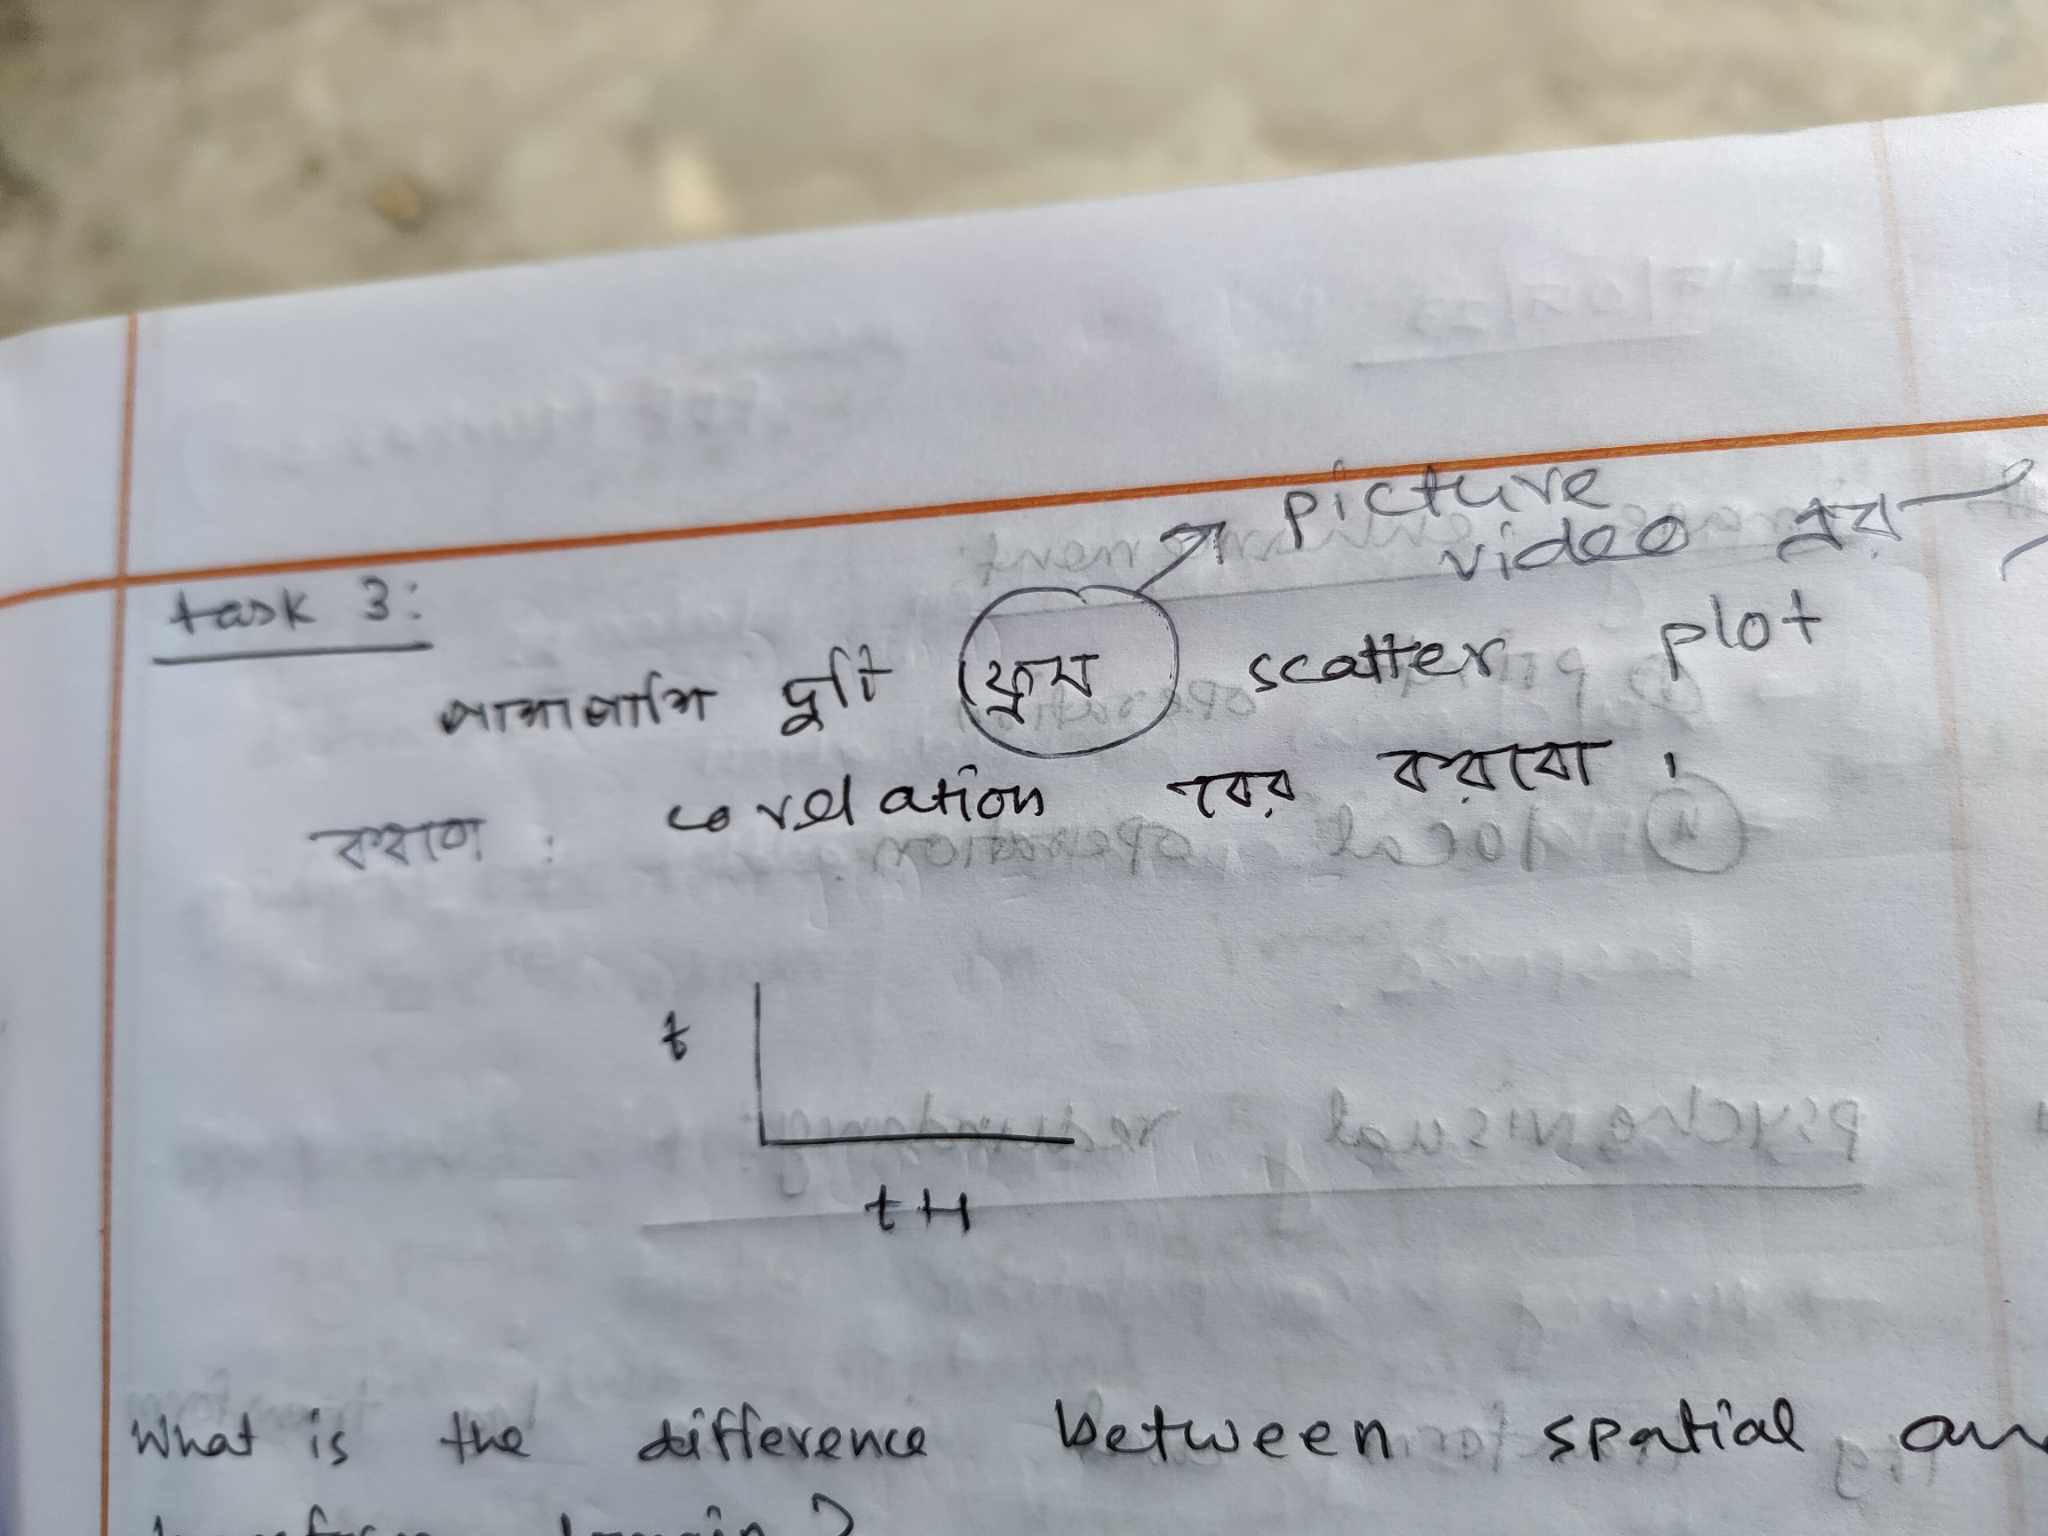 picture
video এর
task 3:
পাশাপাশি দুটি ফ্রেম scatter plot
করবো. corelation বের করবো।
t
t+1
What is the difference between spatial an
domain?